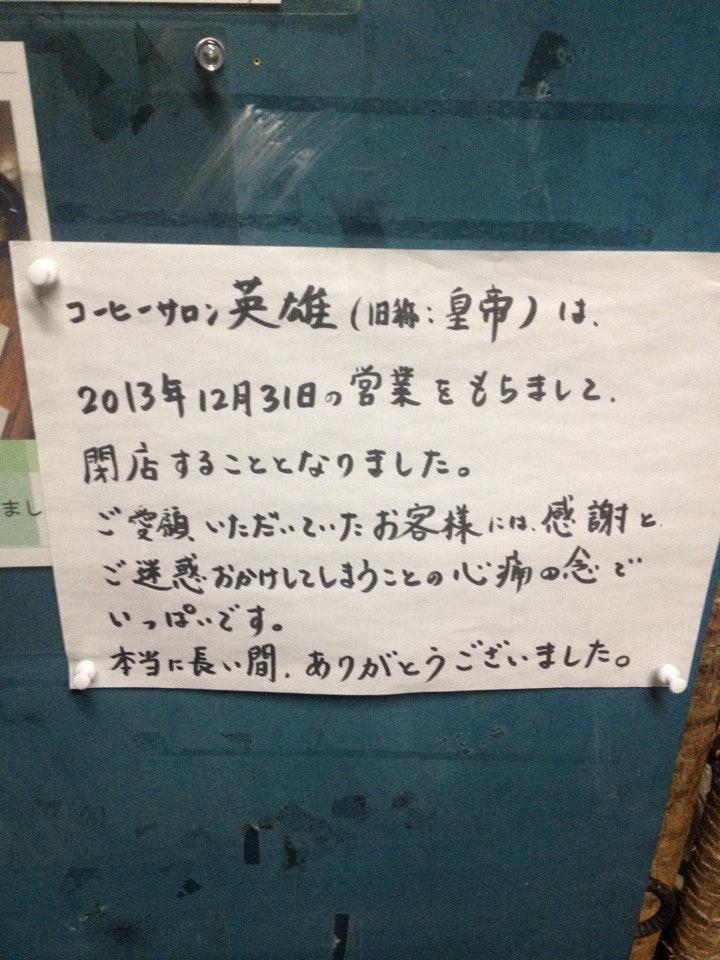 コーヒーサロン英雄(旧称:皇帝)は、
2013年12月31日の営業をもちまして、
閉店することとなりました。
ご愛顧いただいていたお客様には、感謝と
ご迷惑おかけしてしまうことの心痛の念で
いっぱいです。
本当に長い間、ありがとうございました。
まし